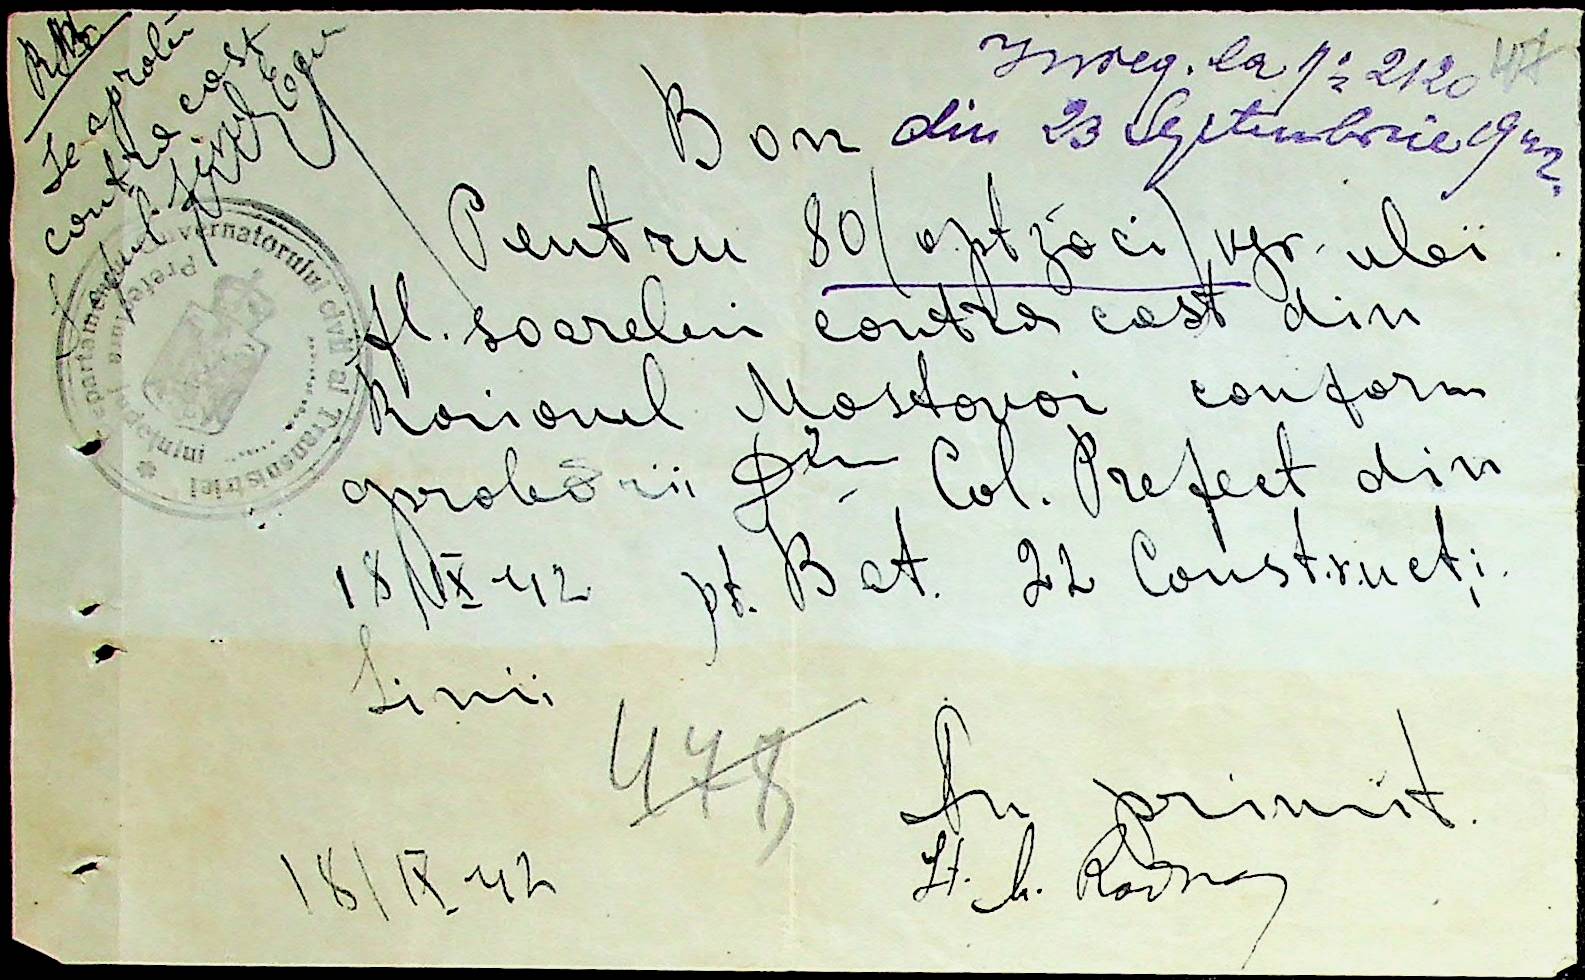 Se aprobă
contra cost
Inreg. la No 2120
47
din 23 Septembrie 942.
Bon
Pentru 80 (optzeci) kgr. ulei
fl. soarelui contra cost din
Raionul Mostovoi conform
aprobării Dlui Col. Prefect din
18/IX 42 pt. Bat. 22 Construcţi
Linii
478
Am primit.
18/IX 42
Lt.
Departamentul Guvernatorului civil al Transnistriei
Prefectura Judeţului